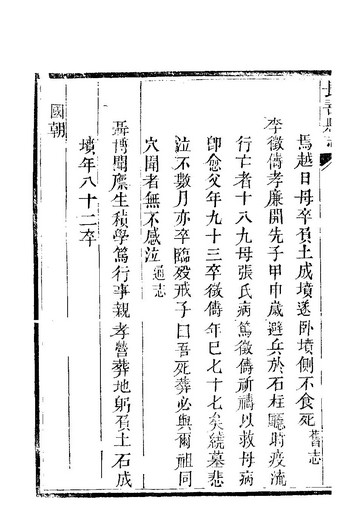 長壽縣志
焉越日母卒負土成墳遂臥墳側不食死舊志
李徵儔孝廉開先子甲申歲避兵於石柱廳時疫流
行亡者十八九母張氏病篤徵儔祈禱以救母病
卽愈父年九十三卒徵儔年已七十七矣繞墓悲
泣不數月亦卒臨歿戒子曰吾死葬必與爾祖同
穴聞者無不感泣通志
國朝
聶博聞廪生積學篤行事親孝營葬地躬負土石成
墳年八十二卒